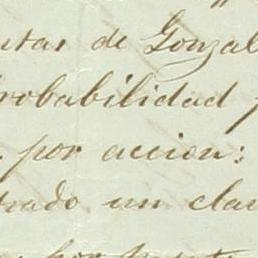 de Gonzal
robabilidad
por accion:
trado un cla